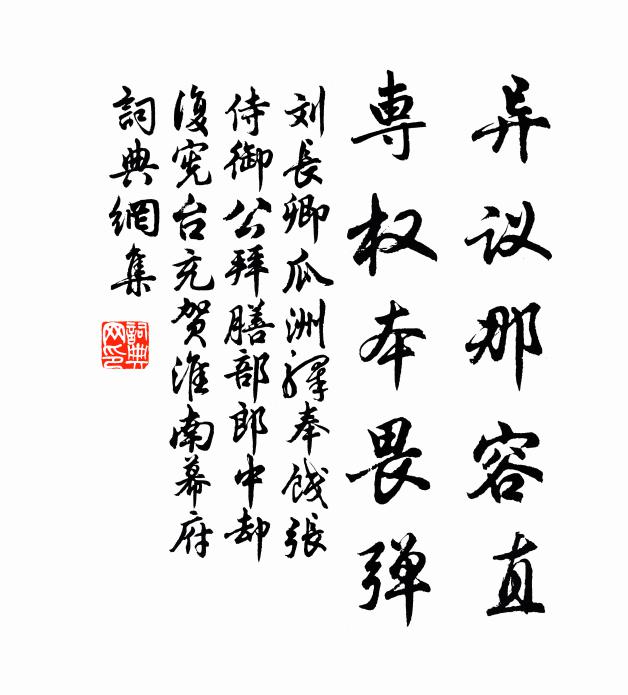 异议那容直
専权本畏弹
刘長卿瓜洲驛奉餞張
侍御公拜膳部郎中却
復宪台充贺淮南幕府
詞典網集
詞典网印